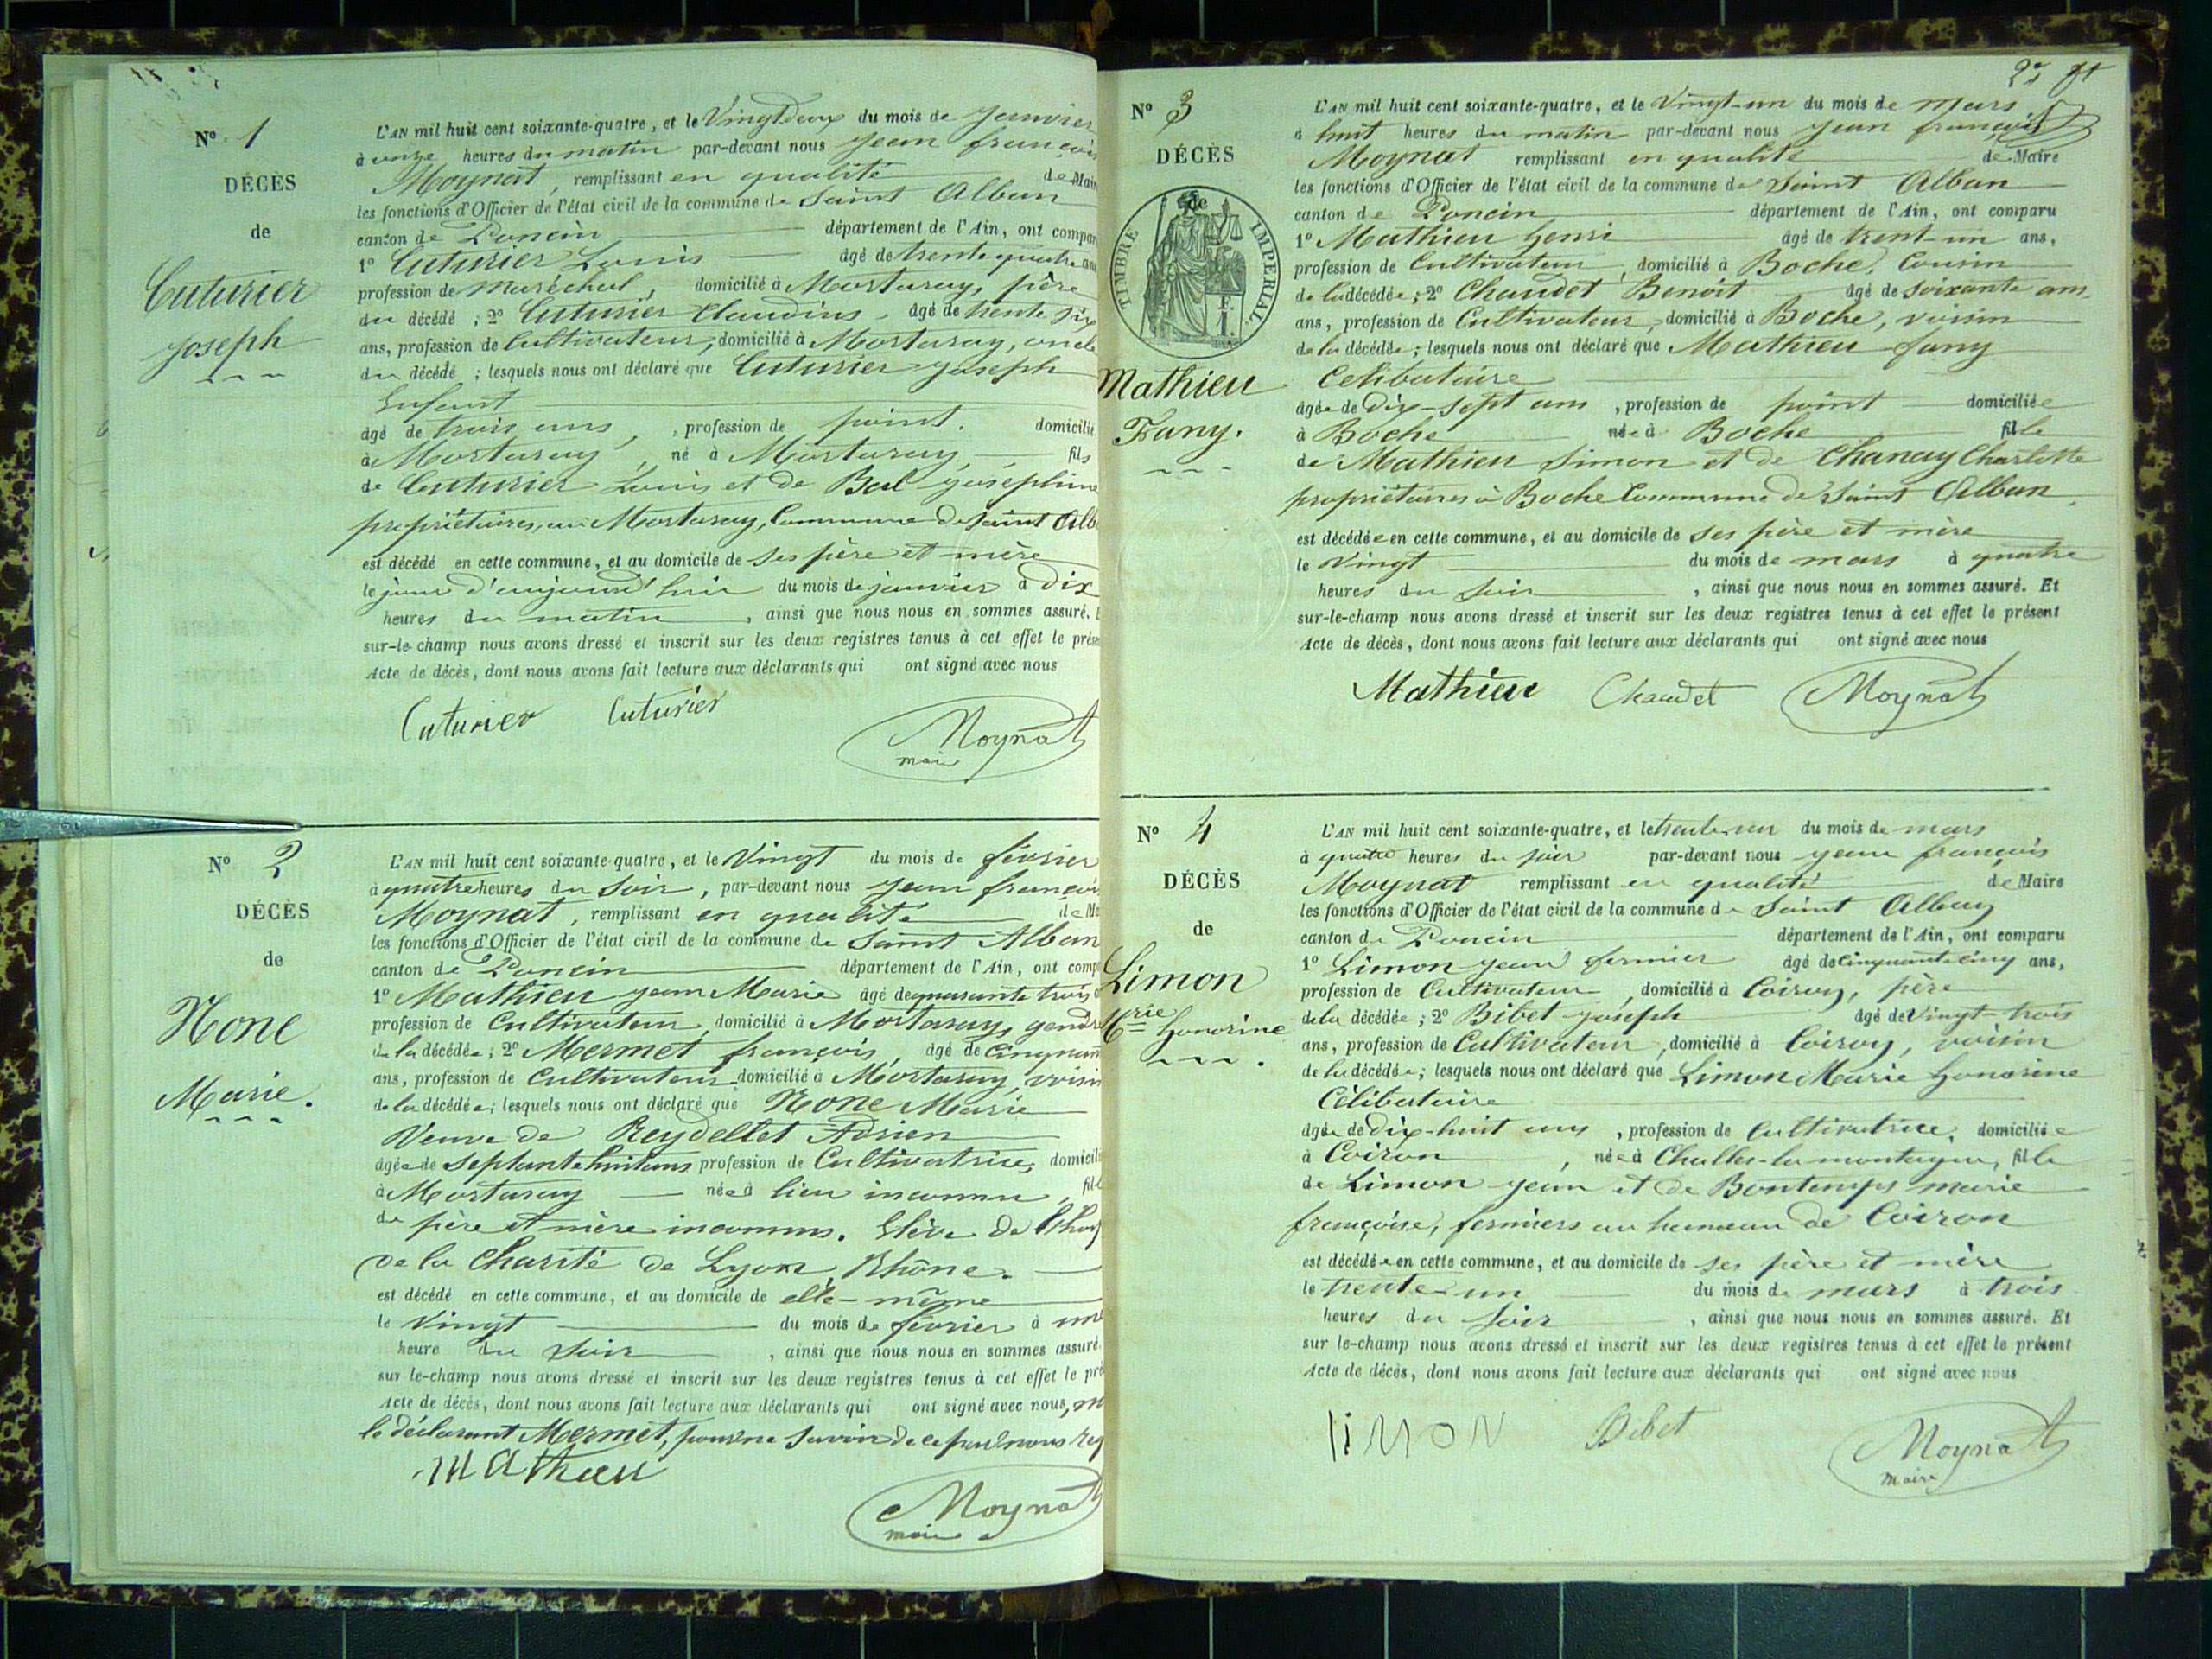 N° 1
DÉCÈS
de
Cuturier
Joseph
L'AN mil huit cent soixante-quatre, et le Vingt deux du mois de Janvier
à onze heures du matin par-devant nous Jean françois
Moynat, remplissant en qualité de Mair
les fonctions d'Officier de l'état civil de la commune de Saint Alban
canton de Poncin département de l'Ain, ont compar
1° Cuturier Louis âgé de trente quatre ans
profession de Maréchal, domicilié à Mortaray, père
du décédé ; 2° Cuturier Claudius, âgé de trente six
ans, profession de Cultivateur, domicilié à Mortaray, oncle
du décédé ; lesquels nous ont déclaré que Cuturier Joseph
Enfant
âgé de trois ans, profession de point. domicilié
à Mortaray, né à Mortaray, fils
de Cuturier Louis et de Bal Joséphine
propriétaires, au Mortaray, Commune de Saint Alb
est décédé en cette commune, et au domicile de ses père et mère
le jour d'aujourd'hui du mois de janvier à dix
heures du matin, ainsi que nous nous en sommes assuré. E
sur-le-champ nous avons dressé et inscrit sur les deux registres tenus à cet effet le prése
Acte de décès, dont nous avons fait lecture aux déclarants qui ont signé avec nous
Cuturier Cuturier
Moynat
maire
N° 2
DÉCÈS
de
None
Marie.
L'AN mil huit cent soixante-quatre, et le Vingt du mois de février
à quatre heures du Soir, par-devant nous Jean françois
Moynat, remplissant en qualité de Ma
les fonctions d'Officier de l'état civil de la commune de Saint Alban
canton de Poncin département de l'Ain, ont comp
1° Mathieu Jean Marie âgé de quarante trois
profession de Cultivateur domicilié à Mortaray, gendre
de la décédée ; 2° Mermet françois, âgé de Cinquan
ans, profession de Cultivateur domicilié à Mortaray, voisin
de la décédée ; lesquels nous ont déclaré que None Marie
Veuve de Reydellet Adrien
âgée de septante huit ans profession de Cultivatrice, domicili
à Mortaray née à lieu inconnu, fil
de père et mère inconnus. Elève de l'hos
de la Charité de Lyon, Rhône.
est décédé en cette commune, et au domicile de elle-même
le Vingt du mois de février à une
heure du Soir, ainsi que nous nous en sommes assuré.
sur le-champ nous avons dressé et inscrit sur les deux registres tenus à cet effet le pré
Acte de décès, dont nous avons fait lecture aux déclarants qui ont signé avec nous,
le déclarant Mermet, pour ne savoir de ce par nous req
Mathieu
Moynat
maire
N° 3
DÉCÈS
de
TIMBRE IMPERIAL
F.
1.
Mathieu
Fany.
L'AN mil huit cent soixante-quatre, et le Vingt-un du mois de Mars
à huit heures du matin par-devant nous Jean françois
Moynat remplissant en qualité de Maire
les fonctions d'Officier de l'état civil de la commune de Saint Alban
canton de Poncin département de l'Ain, ont comparu
1° Mathieu henri âgé de trent-un ans,
profession de Cultivateur, domicilié à Boche, Cousin
de la décédée ; 2° Chaudet Benoit âgé de soixante ans
ans, profession de Cultivateur, domicilié à Boche, voisin
de la décédée ; lesquels nous ont déclaré que Mathieu fany
Celibataire
âgée de dix-sept ans, profession de point domiciliée
à Boche née à Boche fille
de Mathieu Simon et de Chanay Charlotte
propriétaires à Boche Commune de Saint Alban.
est décédée en cette commune, et au domicile de ses père et mère
le Vingt du mois de mars à quatre
heures du Soir, ainsi que nous nous en sommes assuré. Et
sur-le-champ nous avons dressé et inscrit sur les deux registres tenus à cet effet le présent
Acte de décès, dont nous avons fait lecture aux déclarants qui ont signé avec nous
Mathieu Chaudet Moynat
N° 4
DÉCÈS
de
Limon
Mrie honorine
L'AN mil huit cent soixante-quatre, et le trente-un du mois de mars
à quatre heures du soir par-devant nous Jean françois
Moynat remplissant en qualité de Maire
les fonctions d'Officier de l'état civil de la commune de Saint Alban
canton de Poncin département de l'Ain, ont comparu
1° Limon Jean fermier âgé de Cinquante cinq ans,
profession de Cultivateur, domicilié à Coiron, père
de la décédée ; 2° Bibet joseph âgé de Vingt-trois
ans, profession de Cultivateur, domicilié à Coiron, voisin
de la décédée ; lesquels nous ont déclaré que Limon Marie honorine
Célibataire
âgée de dix-huit ans, profession de Cultivatrice, domiciliée
à Coiron, née à Challes-la montagne, fille
de Limon Jean et de Bontemps marie
françoise, fermiers au hameau de Coiron
est décédée en cette commune, et au domicile de ses père et mère
le trente-un du mois de mars à trois
heures du Soir, ainsi que nous nous en sommes assuré. Et
sur le-champ nous avons dressé et inscrit sur les deux registres tenus à cet effet le présent
Acte de décès, dont nous avons fait lecture aux déclarants qui ont signé avec nous
liMON Bibet Moynat
Maire